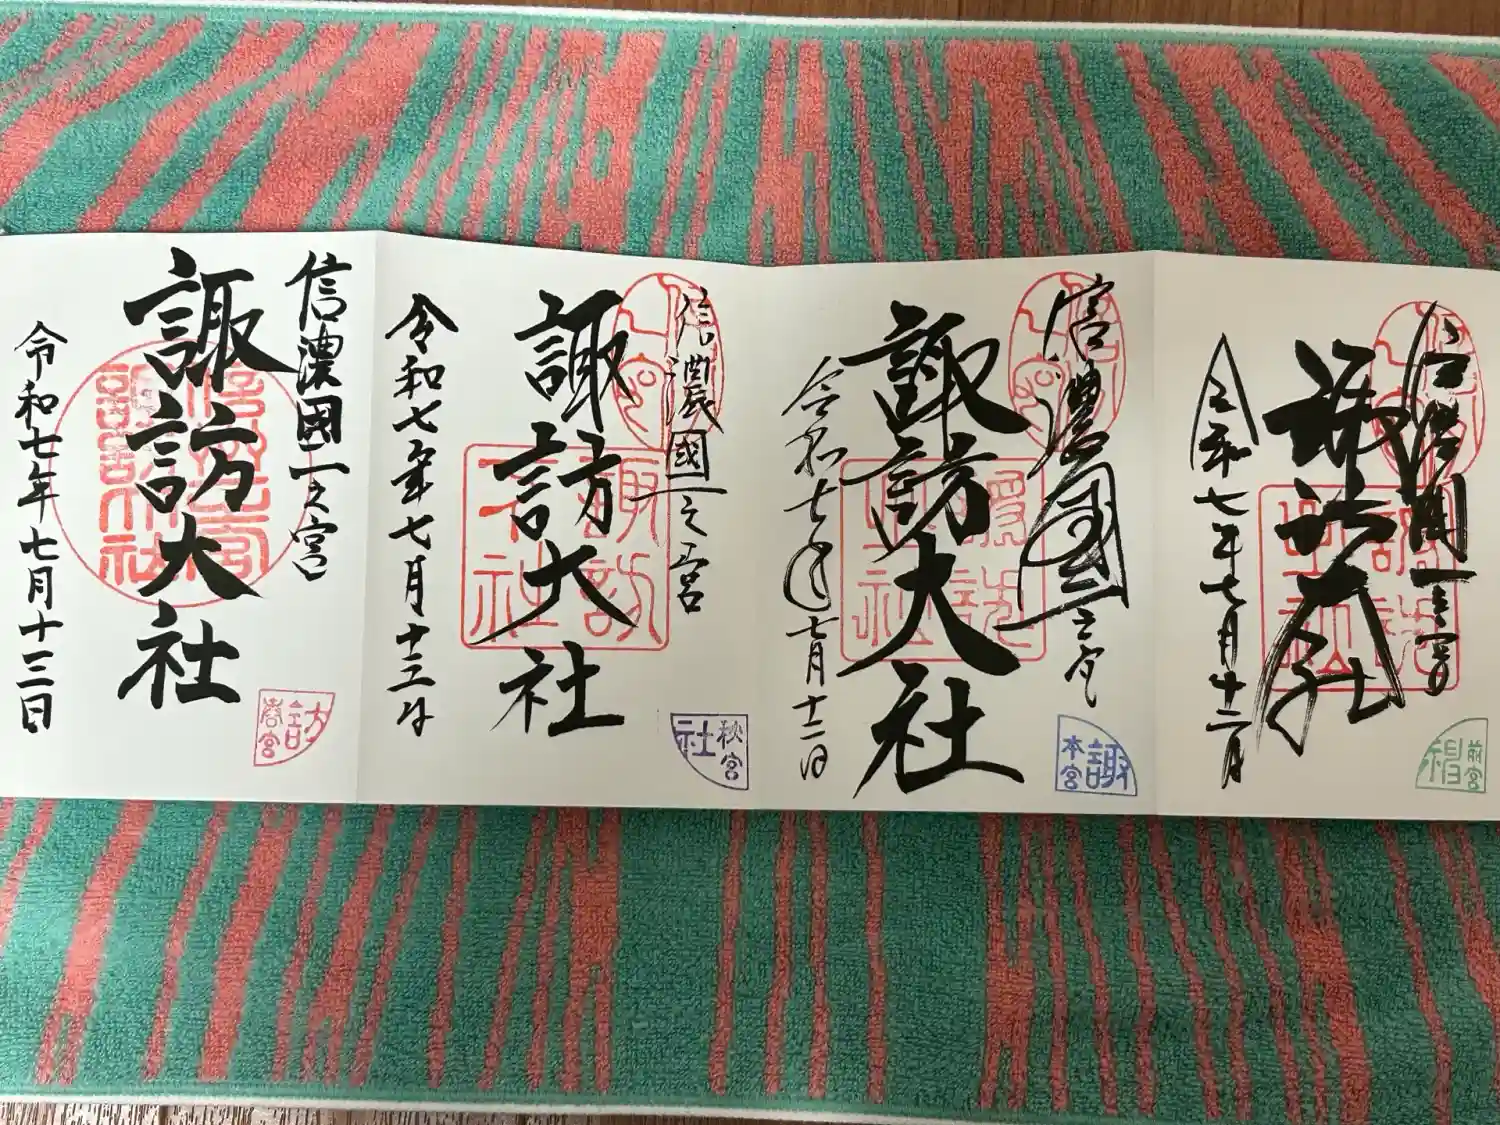 信濃國一之宮
諏訪大社
令和七年七月十三日
春宮
信濃國一之宮
諏訪大社
令和七年七月十三日
諏訪大社
秋宮
社
信濃國一之宮
諏訪大社
令和七年七月十二日
諏
本宮
信濃國一之宮
諏訪大社
令和七年七月十二日
前宮